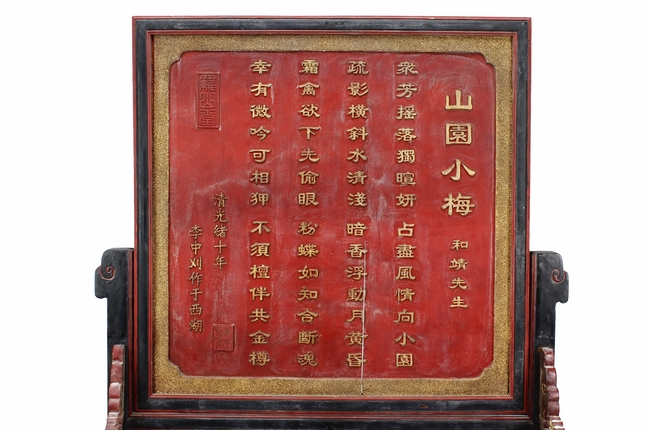 山園小梅
和靖先生
衆芳摇落獨暄妍 占盡風情向小園
疏影横斜水清淺 暗香浮動月黄昏
霜禽欲下先偷眼 粉蝶如知合斷魂
幸有微吟可相狎 不須檀伴共金樽
清光緒十年
李中刈作于西湖